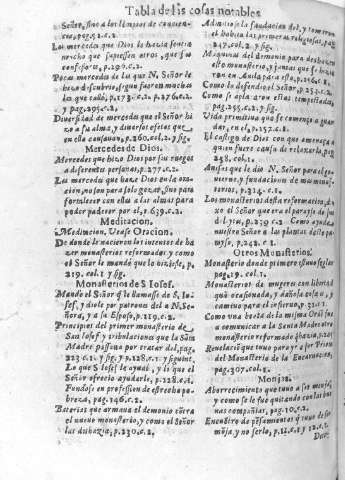 Tabla de las cosas notables
Señor, sino a los limpios de
pag. 52. c. 2.
Las mercedes que Dios le hazia sentia
mucho que supiessen otros, que sus
confessores, p. 190. c. 2.
Pocas mercedes de las que N. Señor le
hizo descubrio, segun fueron muchas
las que callò, p. 173. c. 2. p. 276. c. 2.
y pag. 295. c. 2.
Diversidad de mercedes que el Señor hi
zo a su alma, y diversos efetos que
en ella causaron, p. 260. col. 2. y sig.
Mercedes de Dios.
Mercedes que hizo Dios por sus ruegos
a diferentes personas, p. 277. c. 2.
Las mercedes que haze Dios en la ora
cion, no son para solo gozar, sino para
fortalecer con ellas a las almas para
poder padecer por el, p. 639. c. 2.
Meditacion.
Meditacion, Vease Oracion.
De donde le nacieron los intentos de ha
zer monasterios reformados y como
el Señor le mandò que lo hiziesse, p.
219. col. 1 y sig.
Monasterios de S. Iosef.
Mandò el Señor q̃ se llamasse de S. Io
sef, y diole por patrones del a N. Se
ñora, y a su Esposo, p. 219. c. 2.
Principios del primer monasterio de
San Iosef y tribulaciones que la Santa
Madre passò por tratar del, pag.
223. c. 1 y sig. y p. 228. c. 1. y siguient.
Lo que S. Iosef le ayudò, y lo que el
Señor ofrecio ayudarle, p. 228. c. 1.
Fundose en profession de estrecha po
breza, pag. 246. c. 2.
Baterias que armaua el demonio côtra
el nueuo monasterio, y como el Señor
las deshazia, p. 230. c. 2.
el hobieron las primeras religiosas, pag.
247. col. 2. y sig.
Maquinas del demonio para deshazer
este monasterio, y juntas que se hizie
ron en Auila para esto, p. 256. c. 2.
Como lo defendio el Señor. p. 254. c. 2.
Como se aplacaron estas tempestades,
pag. 255. c. 2. y sig.
Vida primitiua que se començò a guar
dar, en el, p. 257. c. 2.
El castigo de Dios con que amenaza a
quien fuere causa de relaxarla, pag.
258. col. 1.
Auisos que le dio N. Señor para el go-
uierno, y fundaciones de sus mona-
sterios, p. 314. c. 1.
Los monasterios desta reformacion, di
xo el Señor que era el paraiso de su
deleyte, p. 239. c. 2. Como ayuda
nuestro Señor a las plantas deste pa
rayso, p. 242. c. 2.
Otros Monasterios.
Monasterio donde primero estuuo seglar
pag. 19. col. 1.
Monasterios de mugeres con libertad
quã ocasionados, y dañosos sean, y
camino para el infierno, p. 31. c. 2.
Como una beata de la misma Ordẽ fue
a comunicar a la Santa Madre otro
monasterio reformado q̃ hazia, p. 242.
Reuelaciõ que tuuo para yr a ser Priora
del Monasterio de la Encarnacion,
pag. 307. col. 2.
Monjas.
Aborrecimiento que tuuo a ser monja,
y como se le fue quitando con las bue
nas compañias, pag. 10. c. 2.
Encuentro de pẽsamientos q̃ tuuo de ser
mõja, y no serlo, p. 11. c. 1. y 12. c. 1.